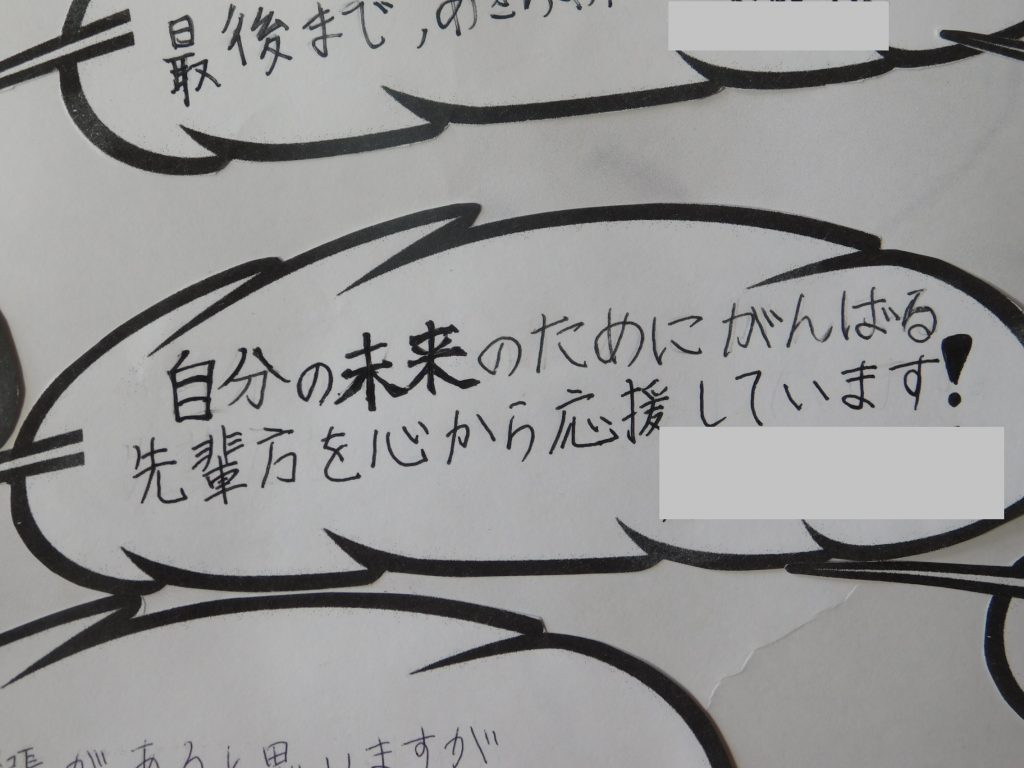 最後まで,あきらめ
自分の未来のためにがんばる
先輩方を心から応援しています!
張があると思いますが